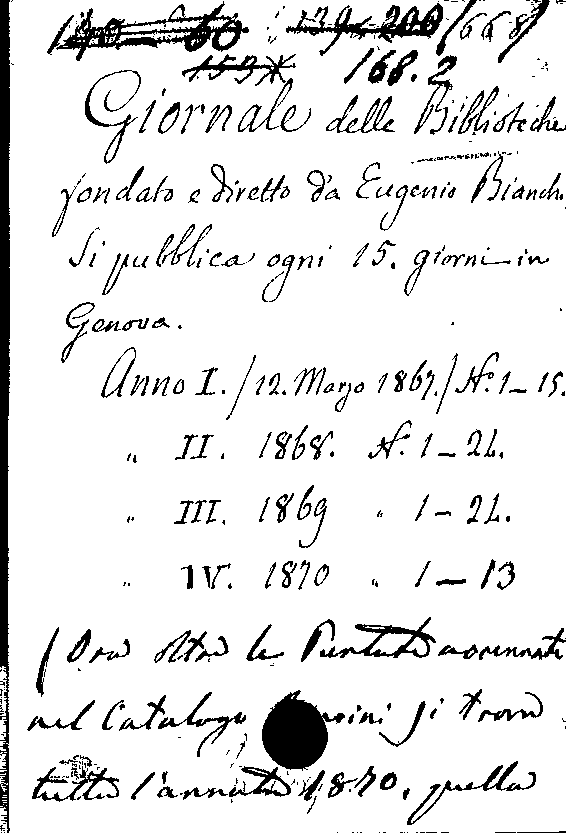 140 - 60 139 200 (668)
153 168.2
Giornale delle Biblioteche
fondato e diretto da Eugenio Bianch
Si pubblica ogni 15. giorni in
Genova.
Anno I. / 12. Marzo 1867. / N.º 1-15.
„ II. 1868. N.º 1-24.
„ III. 1869 „ 1-24.
„ IV. 1870 „ 1-13
(Ora oltre le Puntate accennate
nel Catalogo si trova
tutta l'annata 1870, quella